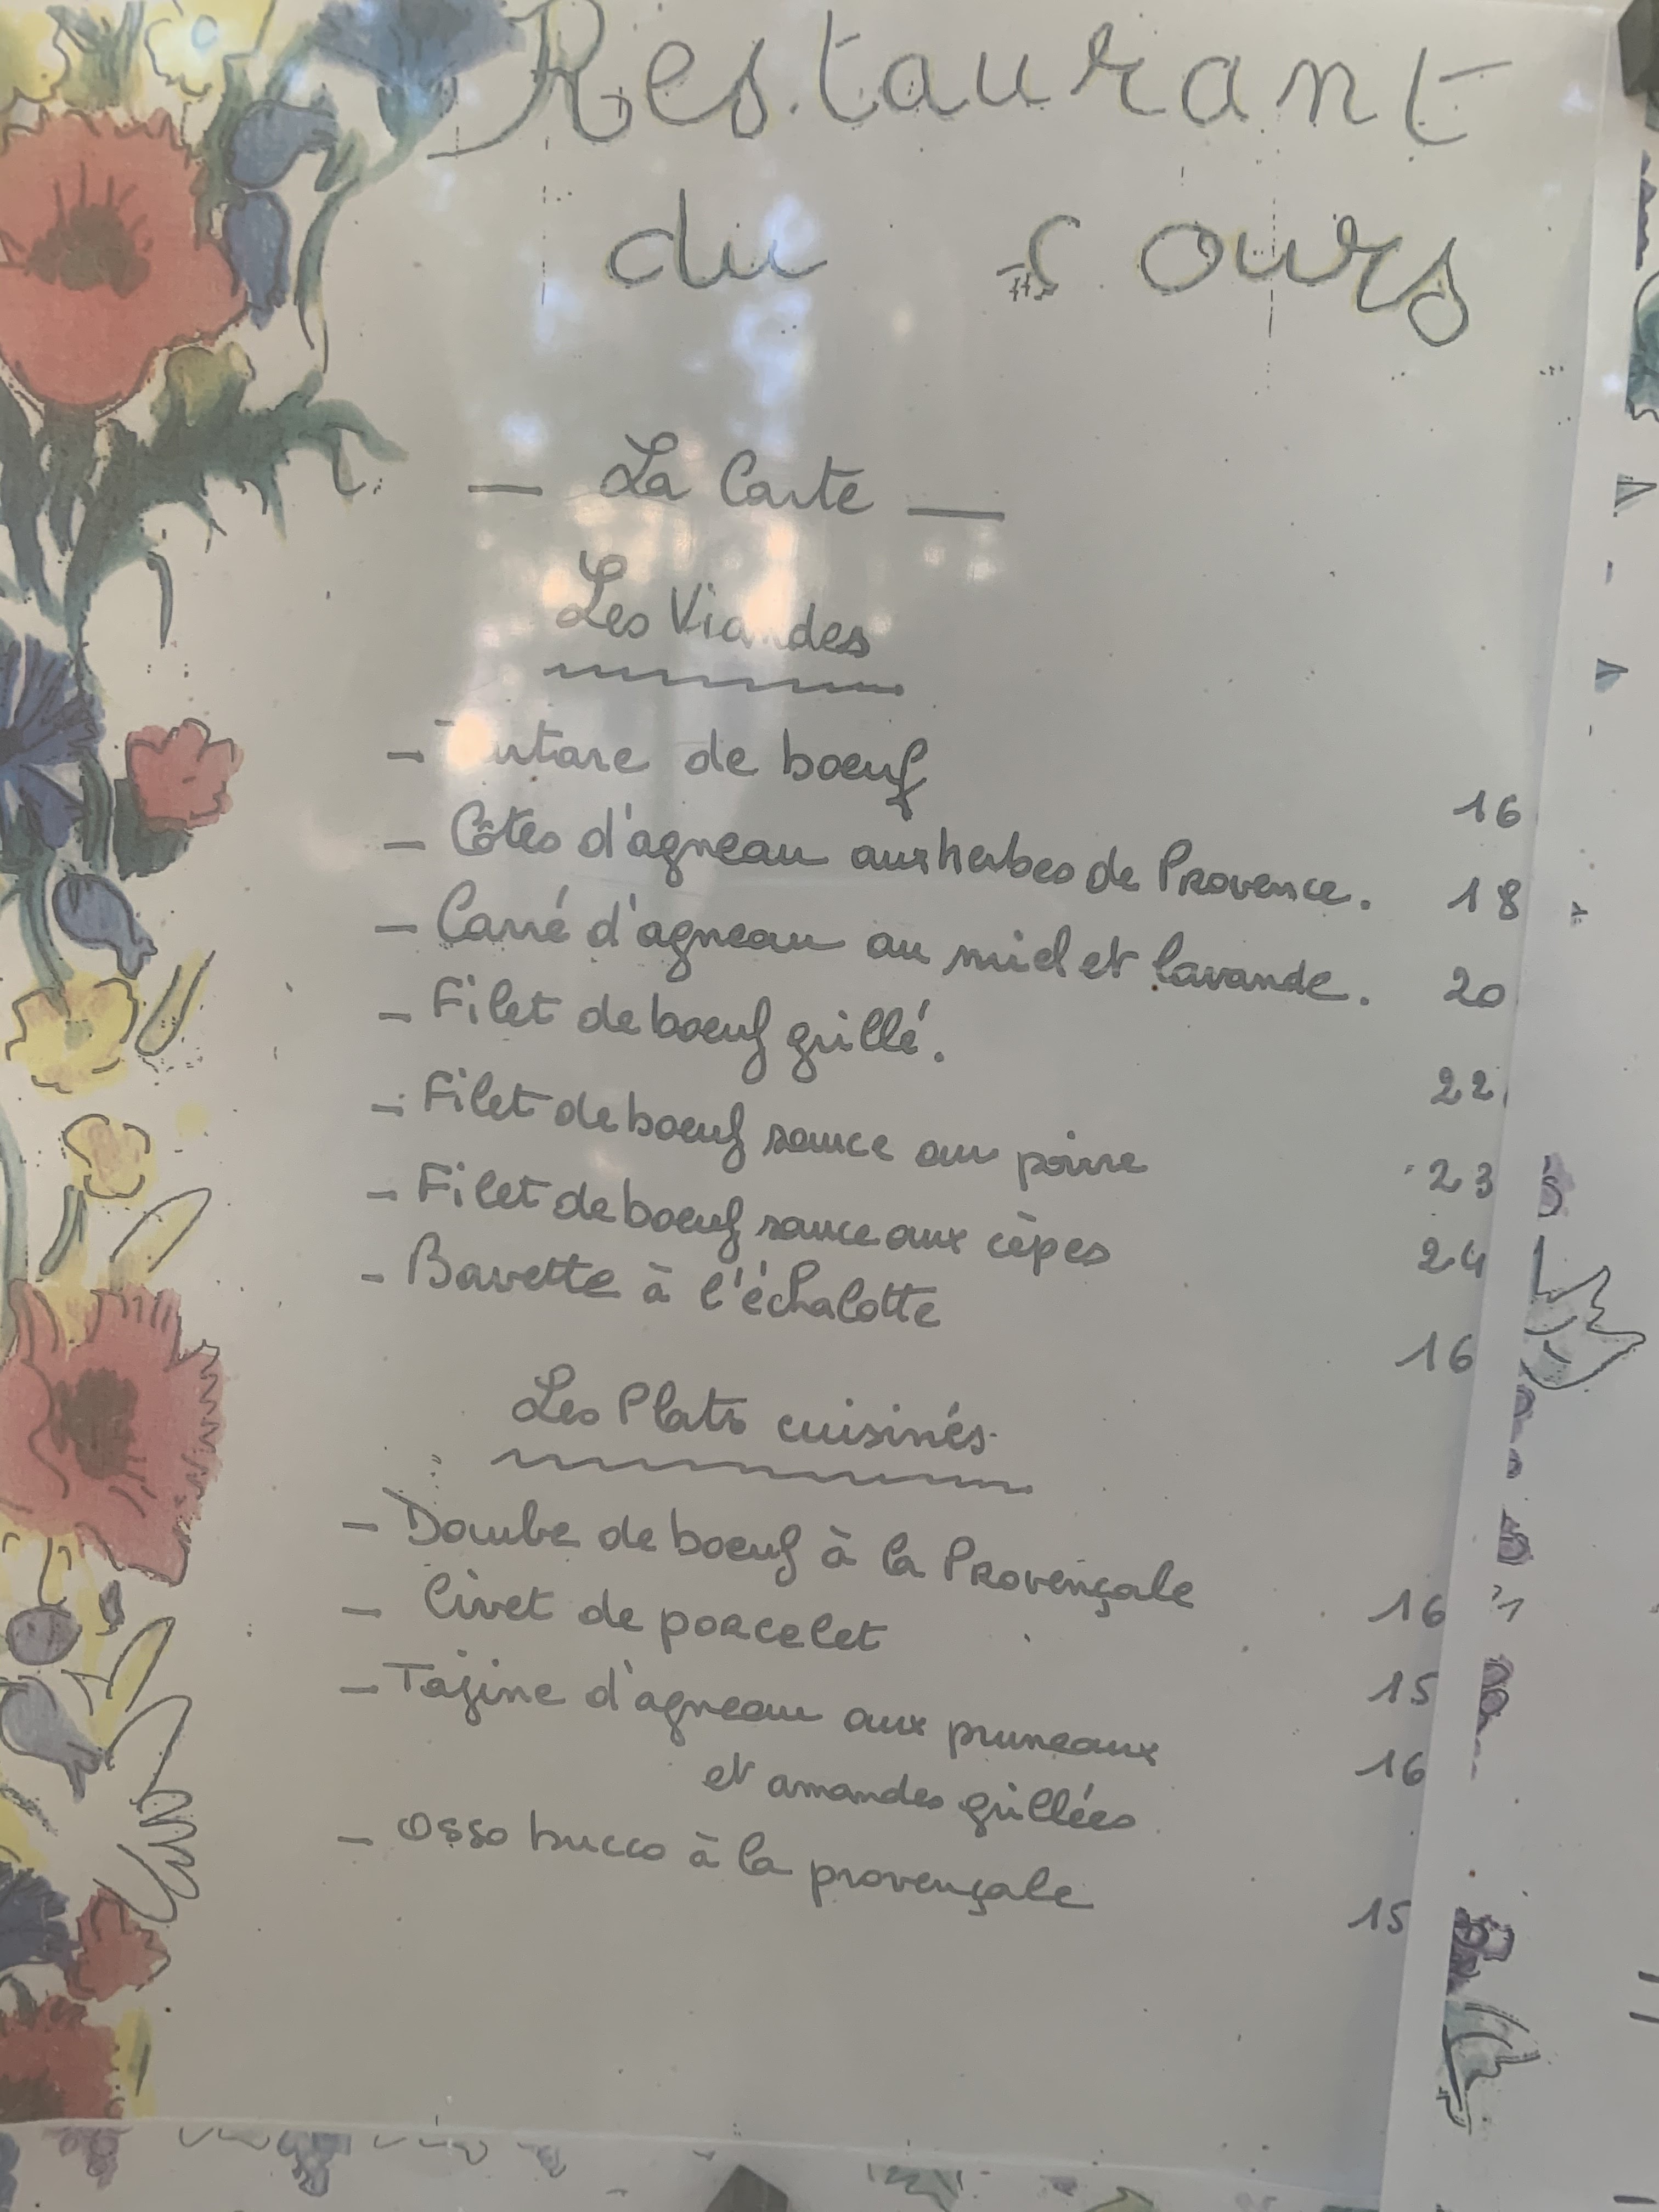 Restaurant
du Cours
— La Carte —
Les Viandes
- Tartare de boeuf 16
- Côtes d'agneau aux herbes de Provence. 18
- Carré d'agneau au miel et lavande. 20
- Filet de boeuf grillé. 22
- Filet de boeuf sauce au poivre 23
- Filet de boeuf sauce aux cèpes 24
- Bavette à l'échalotte 16
Les Plats cuisinés
- Daube de boeuf à la Provençale 16
- Civet de porcelet 15
- Tajine d'agneau aux pruneaux 16
et amandes grillées
- Osso bucco à la provençale 15